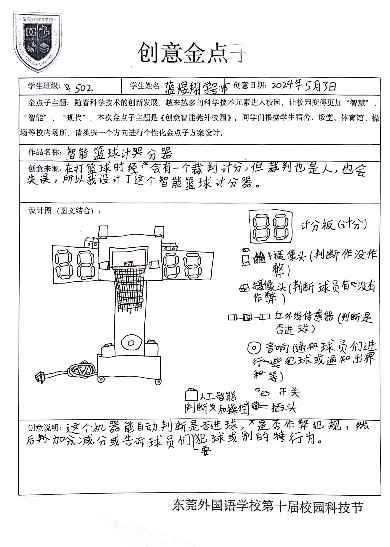 创意金点子
学生班级: 502 学生姓名: 创意日期: 2024年5月3日
金点子主题: 随着科学技术的创新发展, 越来越多的科学技术元素进入校园, 让校园变得更加“智慧”、
“智能”、“现代”。本次金点子主题是《创意智能莞外校园》, 同学们根据学生宿舍、饭堂、体育馆、操
场等校内场所, 请挑选一个方向进行个性化金点子方案设计。
作品名称: 智能篮球计分器
创意来源: 在打篮球时经会有一个裁判计分, 但裁判也是人, 也会
失误, 所以我设计了这个智能篮球计分器。
设计图 (图文结合):
88
88 88
计分板 (计分)
摄像头 (判断作没作
弊)
摄像头 (判断球员有没有
作弊)
红外传感器 (判断是
否进球)
音响 (通知球员们进
行犯球或通知出界
等)
人工智能
判断
开关
插头
创意说明: 这个机器能自动判断是否进球, 是否作弊犯规, 然
后加分减分或告诉球员们犯球或别的行为。
东莞外国语学校第十届校园科技节